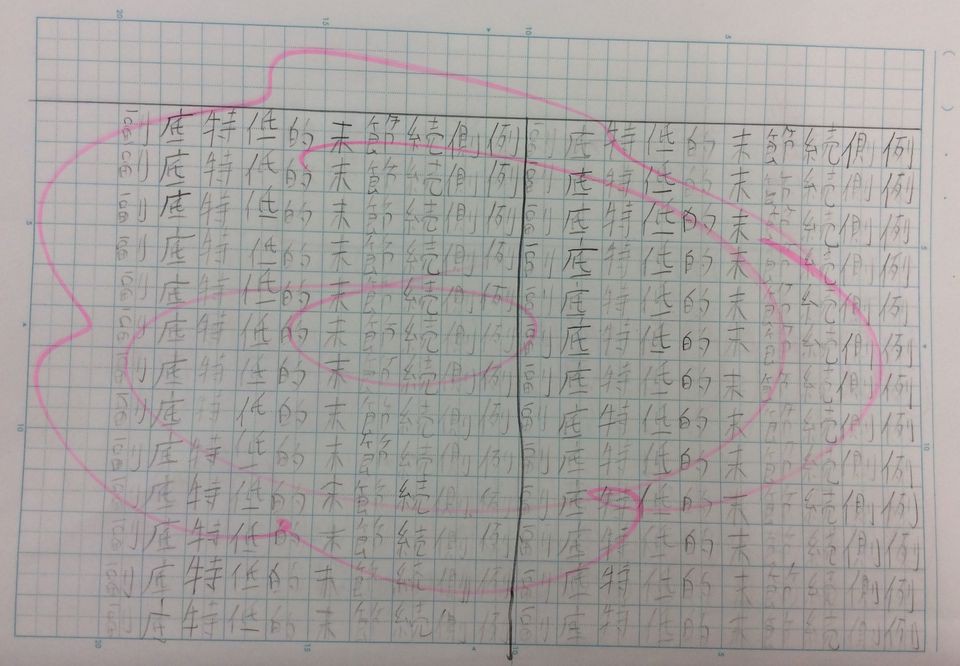 例例例例例例例例例例例例例
側側側側側側側側側側側側側
続続続続続続続続続続続続続
節節節節節節節節節節節節節
未未未未未未未未未未未未未
的的的的的的的的的的的的的
低低低低低低低低低低低低低
特特特特特特特特特特特特特
底底底底底底底底底底底底底
副副副副副副副副副副副副副
例例例例例例例例例例例例例
側側側側側側側側側側側側側
続続続続続続続続続続続続続
節節節節節節節節節節節節節
未未未未未未未未未未未未未
的的的的的的的的的的的的的
低低低低低低低低低低低低低
特特特特特特特特特特特特特
底底底底底底底底底底底底底
副副副副副副副副副副副副副